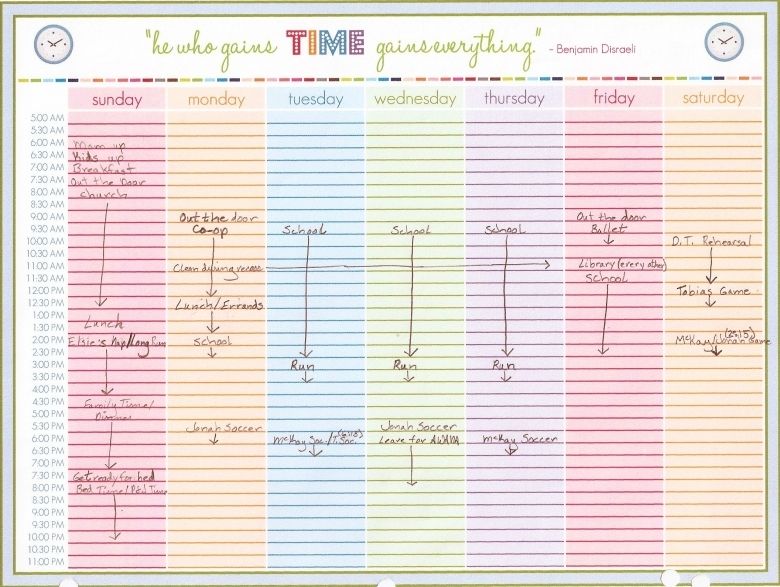 "he who gains TIME gains everything." - Benjamin Disraeli
sunday monday tuesday wednesday thursday friday saturday
5:00 AM
5:30 AM
6:00 AM
6:30 AM
7:00 AM
7:30 AM
8:00 AM
8:30 AM
9:00 AM
9:30 AM
10:00 AM
10:30 AM
11:00 AM
11:30 AM
12:00 PM
12:30 PM
1:00 PM
1:30 PM
2:00 PM
2:30 PM
3:00 PM
3:30 PM
4:00 PM
4:30 PM
5:00 PM
5:30 PM
6:00 PM
6:30 PM
7:00 PM
7:30 PM
8:00 PM
8:30 PM
9:00 PM
9:30 PM
10:00 PM
10:30 PM
11:00 PM
Mom up
Kids up
Breakfast
Out the Door
church
Lunch
Elsie's Nap/Long Run
Family Time/
Dinner
Get ready for bed
Bed Time/
Out the door
Co-op
Clean during recess
Lunch/Errands
School
Jonah Soccer
School
Run
McKay Soc./T. Soc. (6:15)
School
Run
Jonah Soccer
Leave for AWANA
School
Run
McKay Soccer
Out the door
Ballet
Library (every other)
School
D.T. Rehearsal
Tobias Game
(2:15)
McKay/Jonah Game